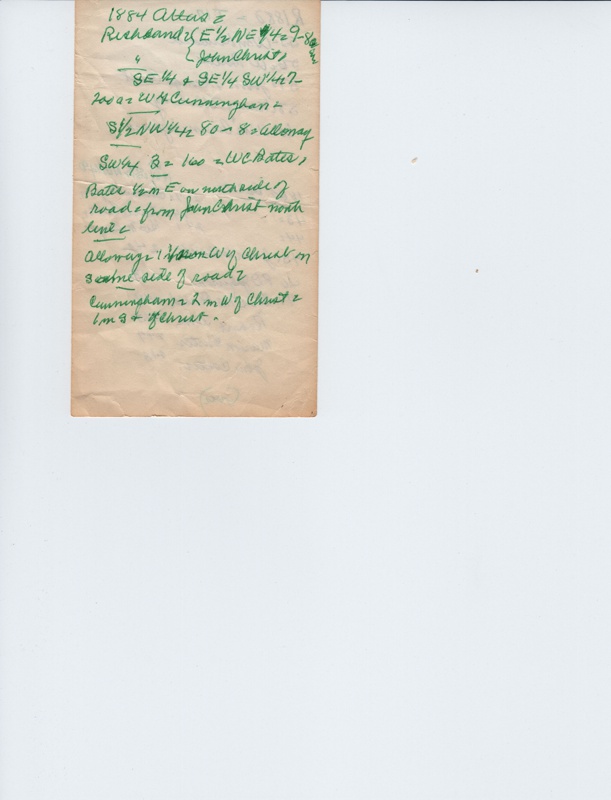 1884 Atlas =
Richland = { E 1/2 NE 1/4 = 9 - 80
{ John Christ,
" SE 1/4 & SE 1/4 SW 1/4 = 7 -
200 a = W H Cunningham =
S 1/2 NW 1/4 = 80 - 8 = Alloway
SW 1/4 3 = 160 = W C Bates,
Bates 1/2 m E on north side of
road = from John Christ north
line =
Alloway = 1 m W of Christ on
same side of road =
Cunningham = 2 m W of Christ =
1 m S of Christ.